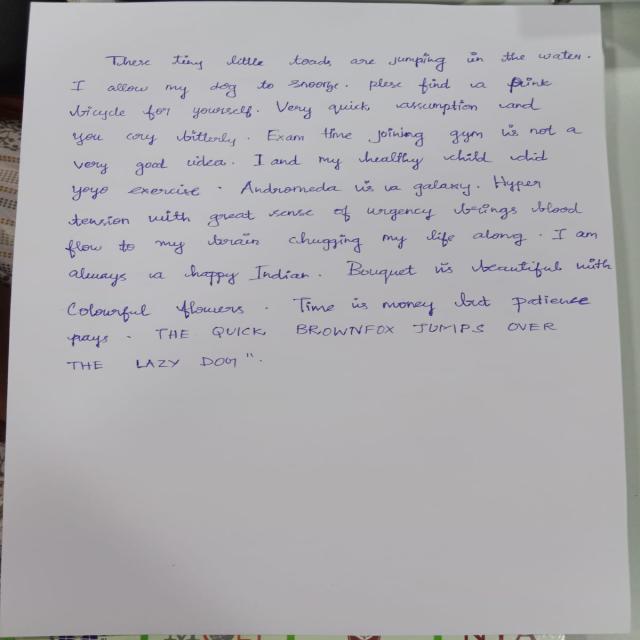 These tiny little toads are jumping in the water.
I allow my dog to snooze. plese find a pink
bicycle for yourself. Very quick assumption and
you cry bitterly. Exam time joining gym is not a
very goat idea. I and my healthy child did
yoyo exercise. Andromeda is a galaxy. Hyper
tension with great sense of urgency brings blood
flow to my brain chugging my life along. I am
always a happy Indian. Bouquet is beautiful with
Colourful flowers. Time is money but patience
pays. THE QUICK BROWNFOX JUMPS OVER
THE LAZY DOG".